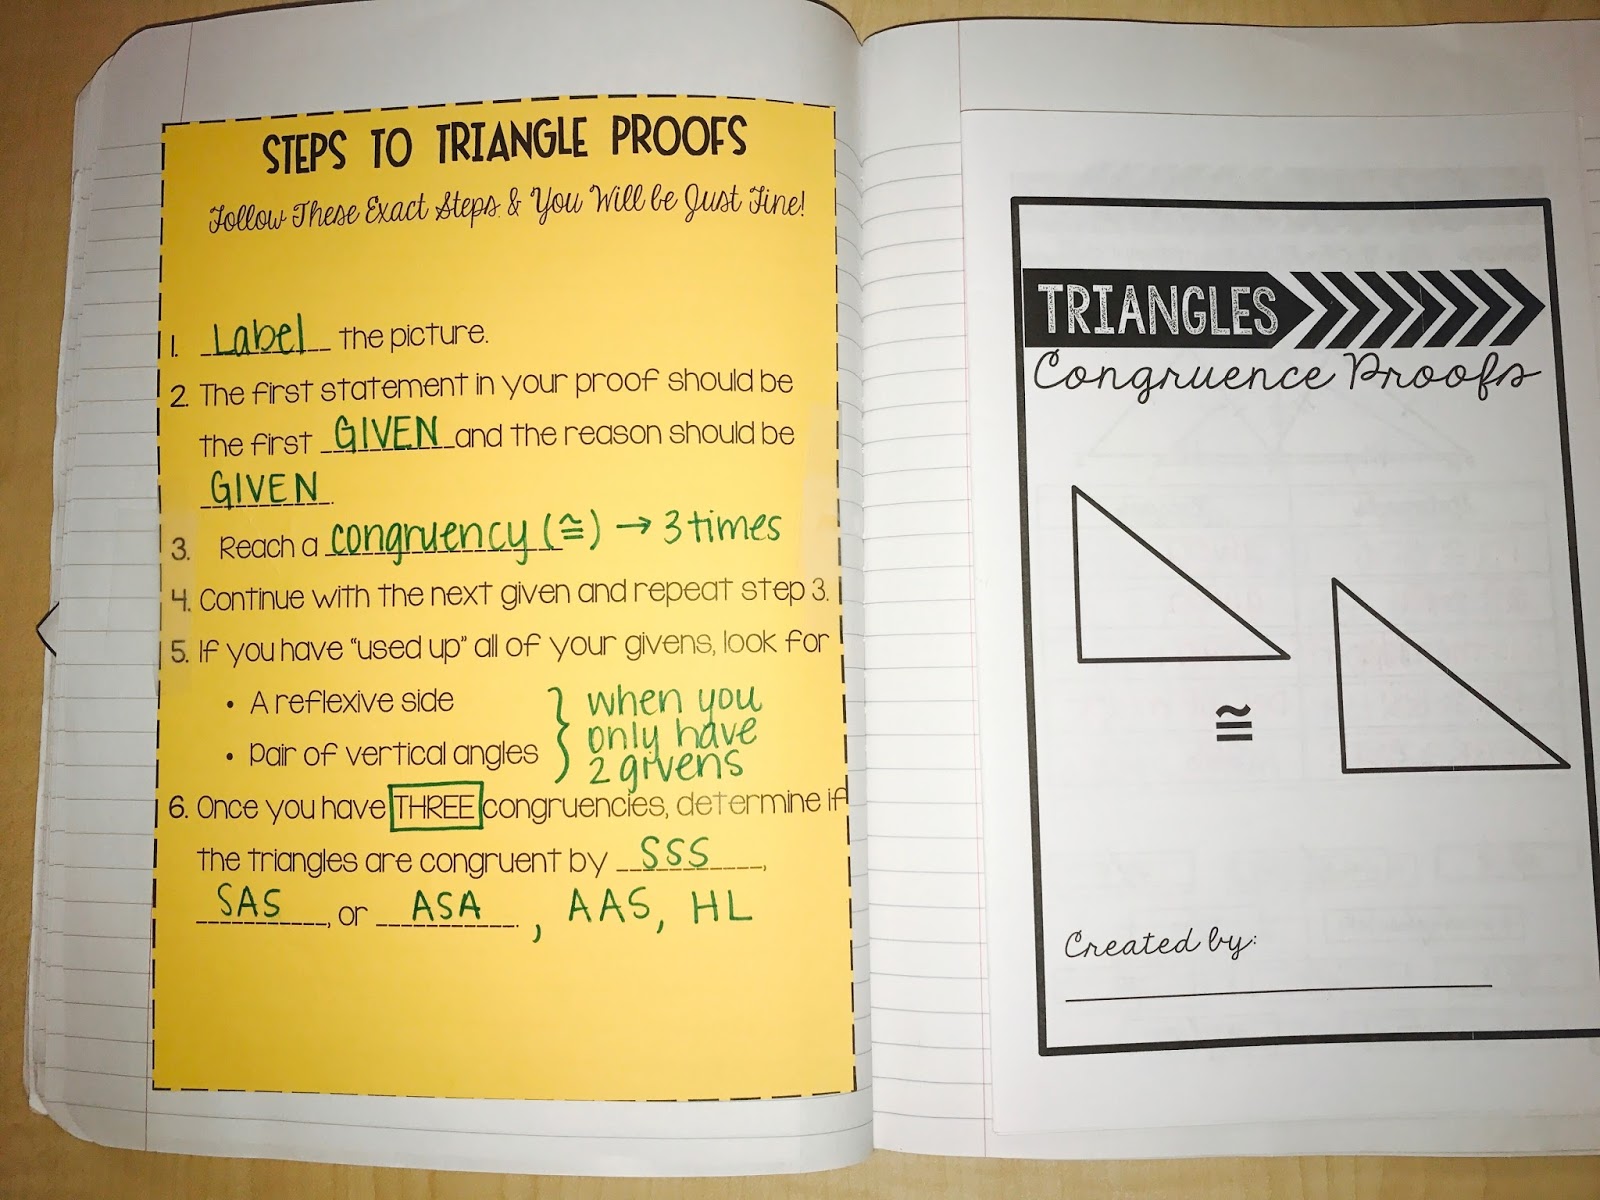 STEPS TO TRIANGLE PROOFS
Follow These Exact Steps & You Will be Just Fine!
1. Label the picture.
2. The first statement in your proof should be
the first GIVEN and the reason should be
GIVEN.
3. Reach a congruency (≅) → 3 times
4. Continue with the next given and repeat step 3.
5. If you have "used up" all of your givens, look for
• A reflexive side
• Pair of vertical angles
} when you
only have
2 givens
6. Once you have THREE congruencies, determine if
the triangles are congruent by SSS,
SAS, or ASA. , AAS, HL
TRIANGLES
Congruence Proofs
≅
Created by: